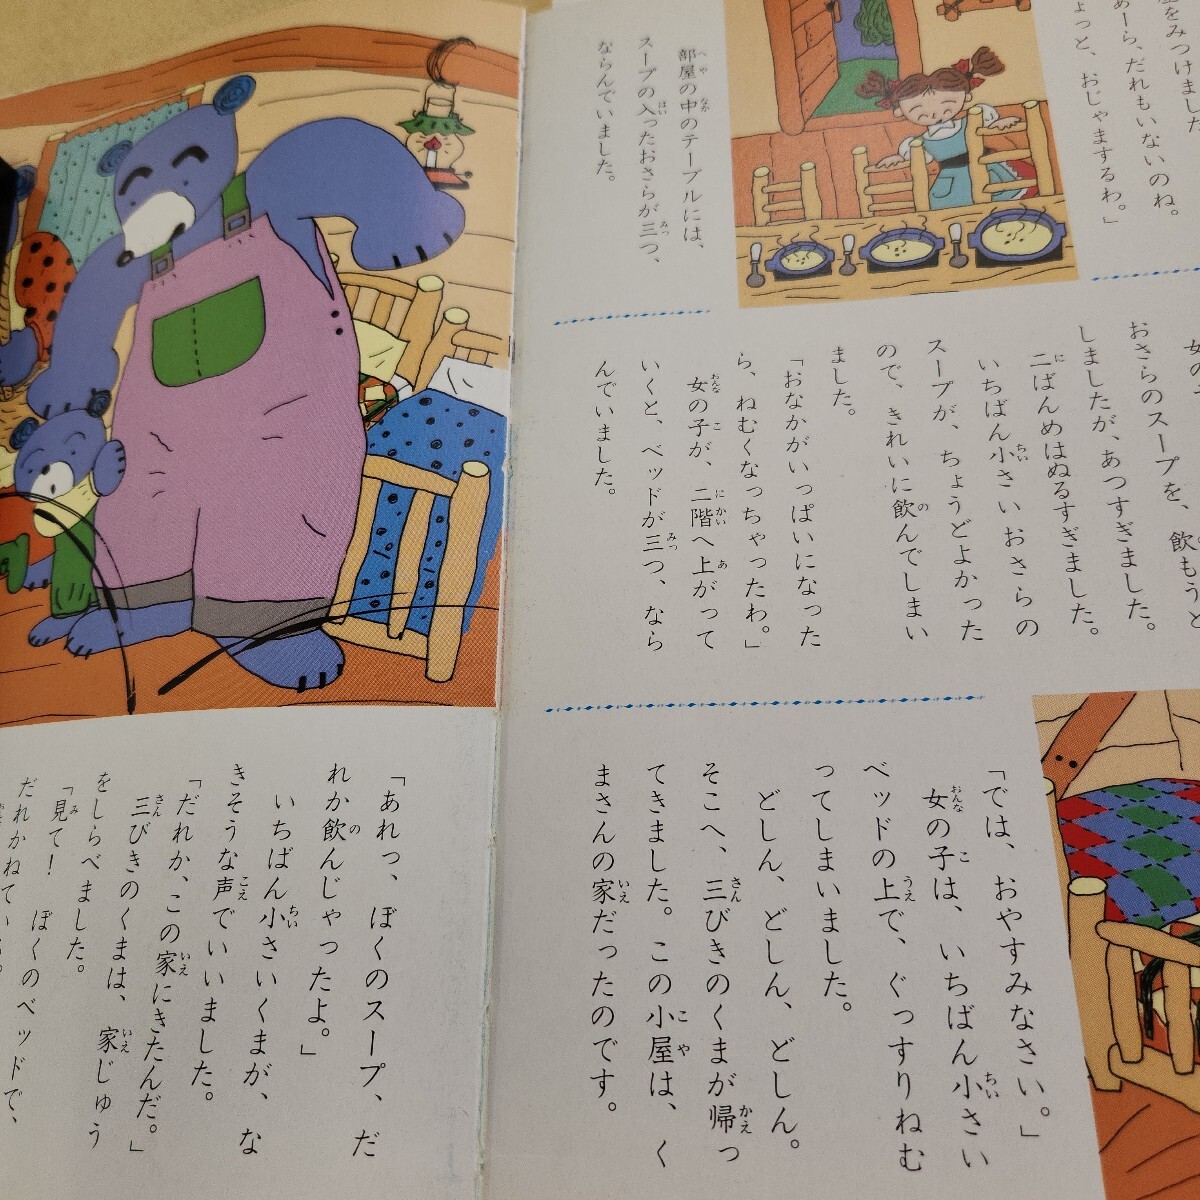 をみつけました
あーら、だれもいないのね。
ょっと、おじゃまするわ。」
部屋の中のテーブルには、
スープの入ったおさらが三つ、
ならんでいました。
女の
おさらのスープを、飲もうと
しましたが、あつすぎました。
二ばんめはぬるすぎました。
いちばん小さいおさらの
スープが、ちょうどよかった
ので、きれいに飲んでしまい
ました。
「おなかがいっぱいになった
ら、ねむくなっちゃったわ。」
女の子が、二階へ上がって
いくと、ベッドが三つ、なら
んでいました。
「では、おやすみなさい。」
女の子は、いちばん小さい
ベッドの上で、ぐっすりねむ
ってしまいました。
どしん、どしん、どしん。
そこへ、三びきのくまが帰っ
てきました。この小屋は、く
まさんの家だったのです。
「あれっ、ぼくのスープ、だ
れか飲んじゃったよ。」
いちばん小さいくまが、な
きそうな声でいいました。
「だれか、この家にきたんだ。」
三びきのくまは、家じゅう
をしらべました。
「見て！ぼくのベッドで、
だれかねている。